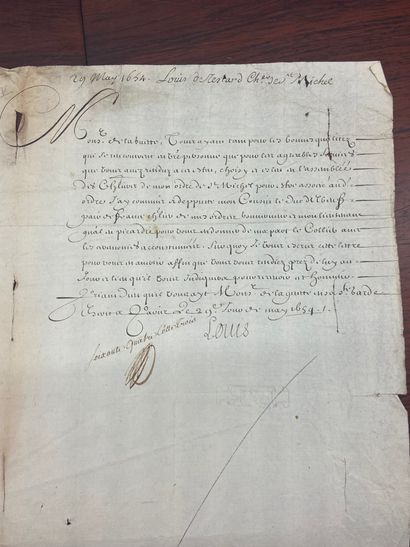 29 May 1654. Louis de Restard Ch.er de St Michel
Mons. de la buitte, Vous ayant tant pour les bonnes qualitez
qui se trouvent en vre personne que pour les agreables services
que vous avez rendus a cet estat, choisy et esleu en l'assemblée
des Chlrs de mon ordre de St Michel pour estre associé aud.
ordre J'ay commis et deputé mon Cousin le Duc
pair de France chlr de mes ordres Gouverneur et mon lieutenant
gnal en picardie pour vous donner de ma part le Collier
les ceremonies accoustumées, Surquoy Je vous escris cette lettre
pour vous en advertir affin que vous vous rendiez prez de luy au
Jour et lieu qu'il vous Indiquera pour recevoir cet honneur
Priant Dieu qu'il vous ayt Mons. de la buitte en sa Ste garde
Escrit a le 29e Jour de may 1654.
Louis
soixante Quatre